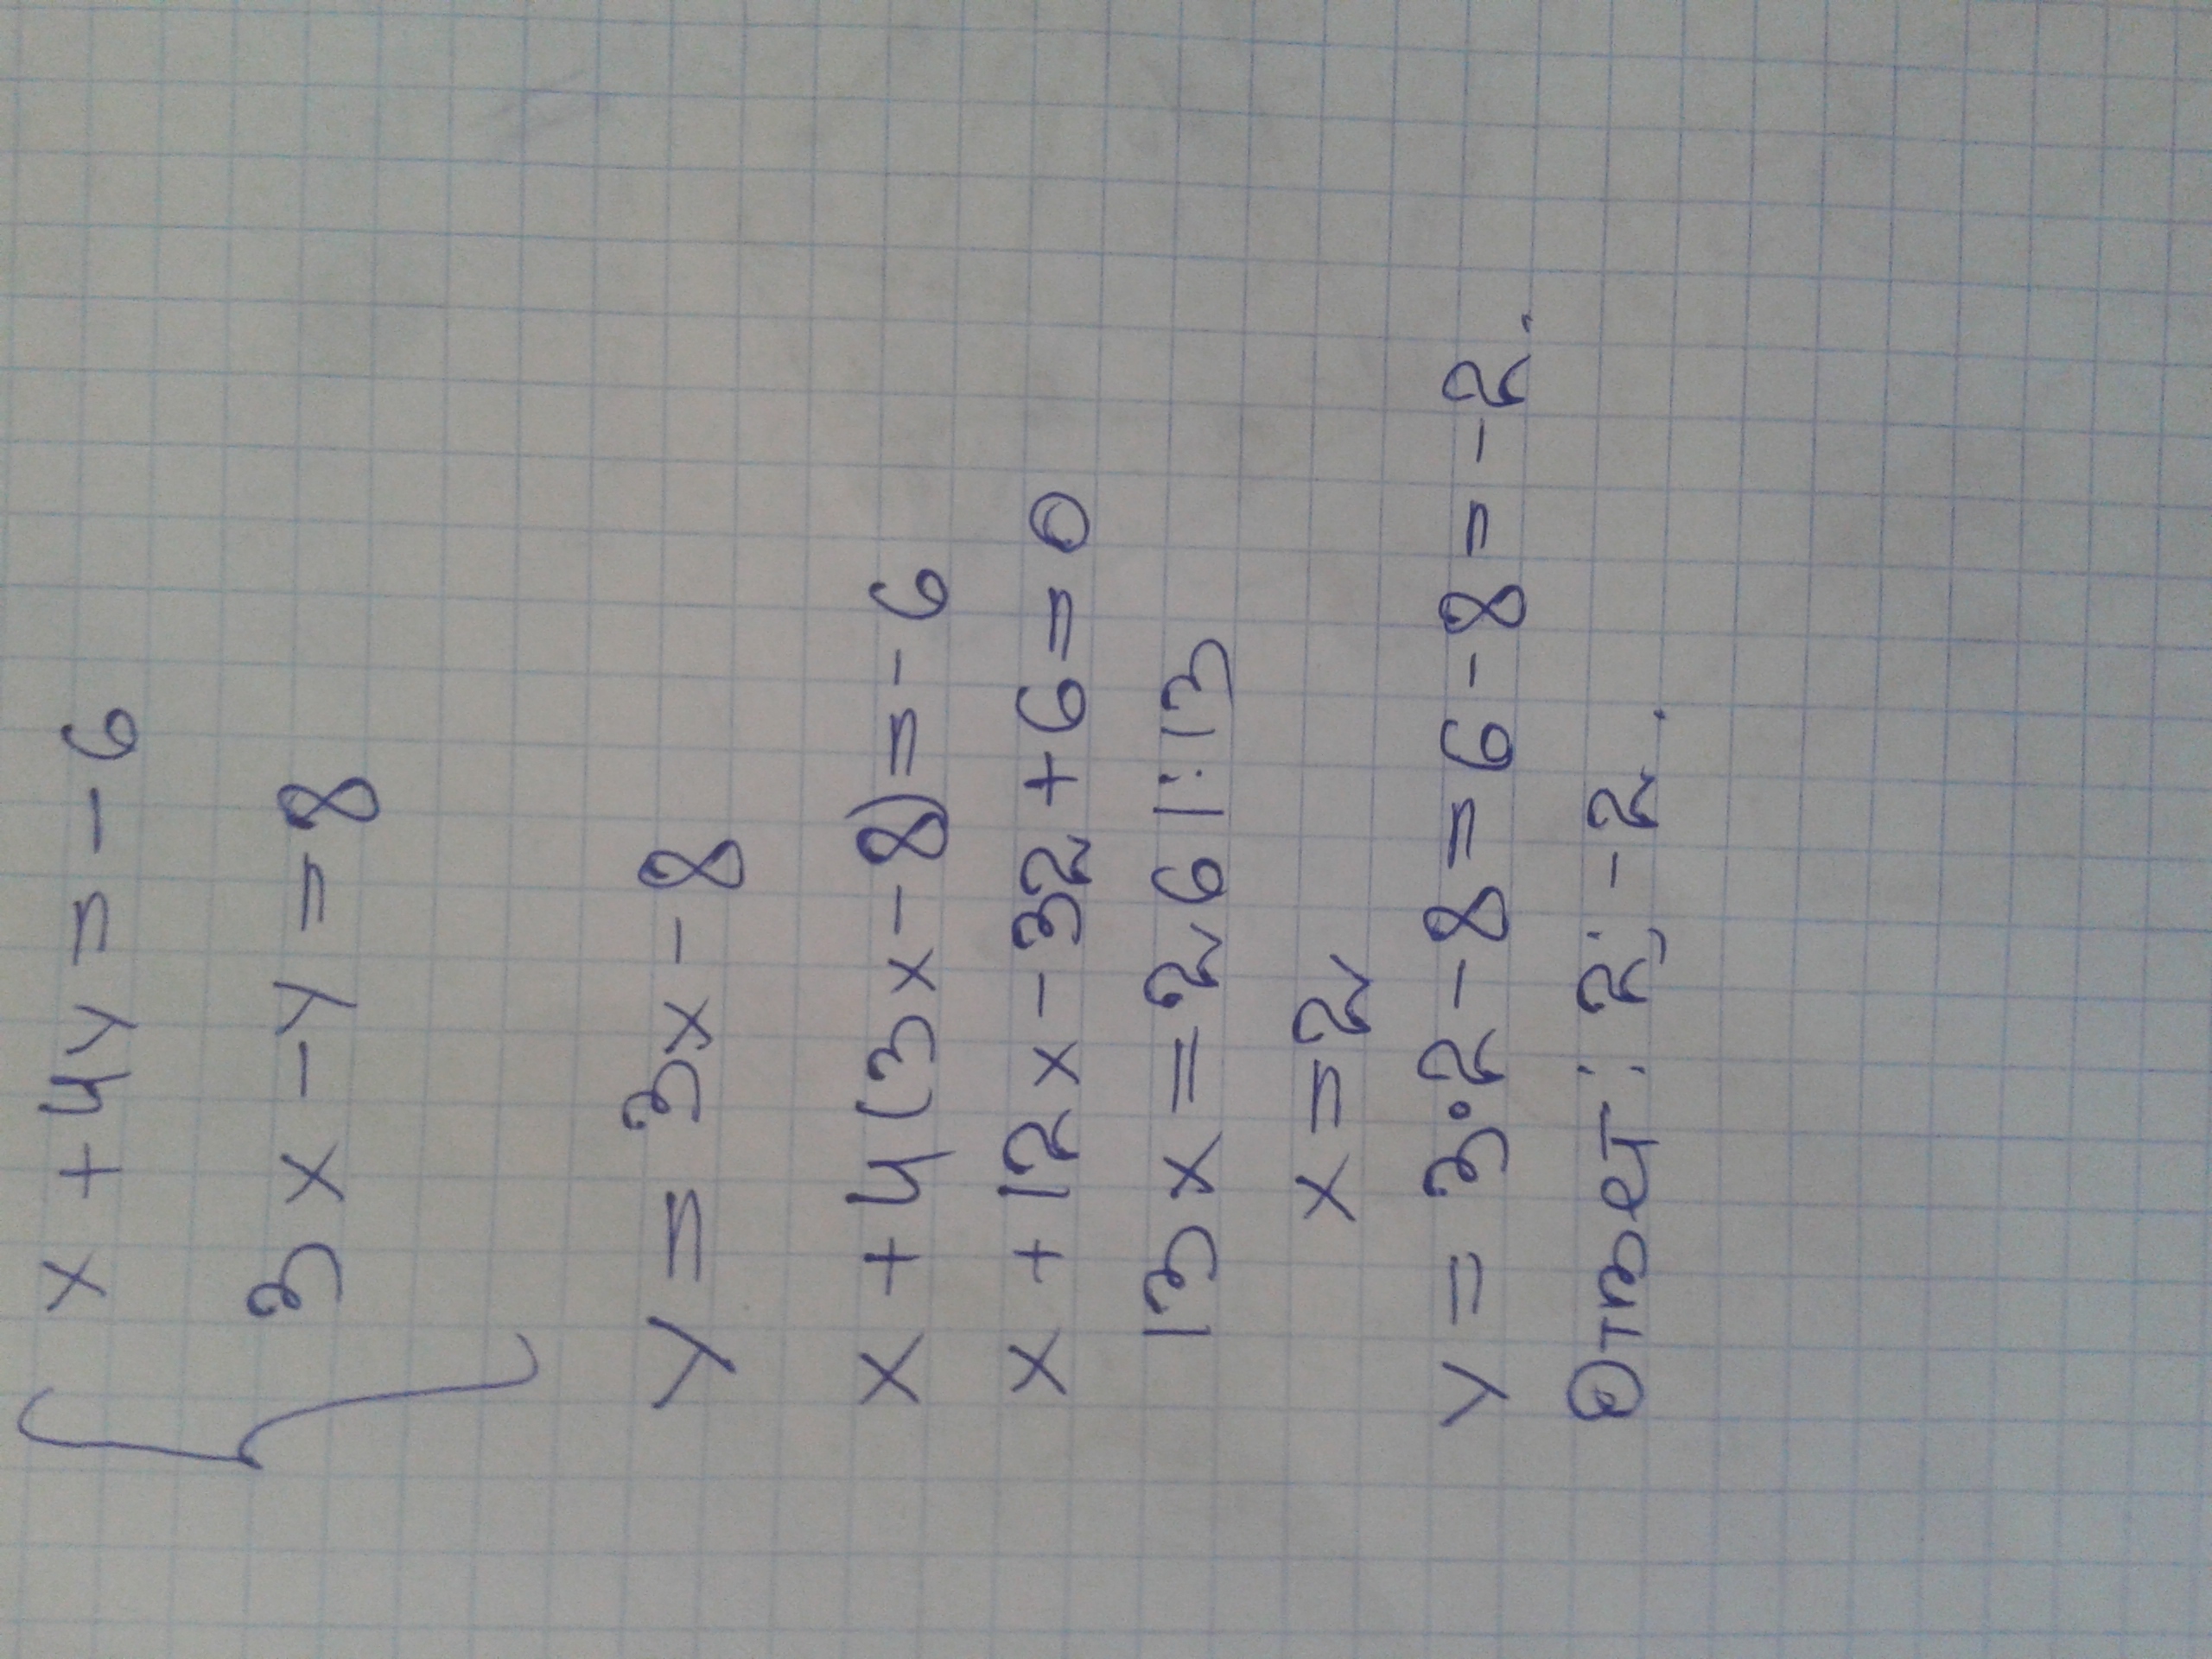 { x + 4y = -6
3x - y = 8
y = 3x - 8
x + 4(3x - 8) = -6
x + 12x - 32 + 6 = 0
13x = 26 |:13
x = 2
y = 3·2 - 8 = 6 - 8 = -2.
Ответ: 2; -2.